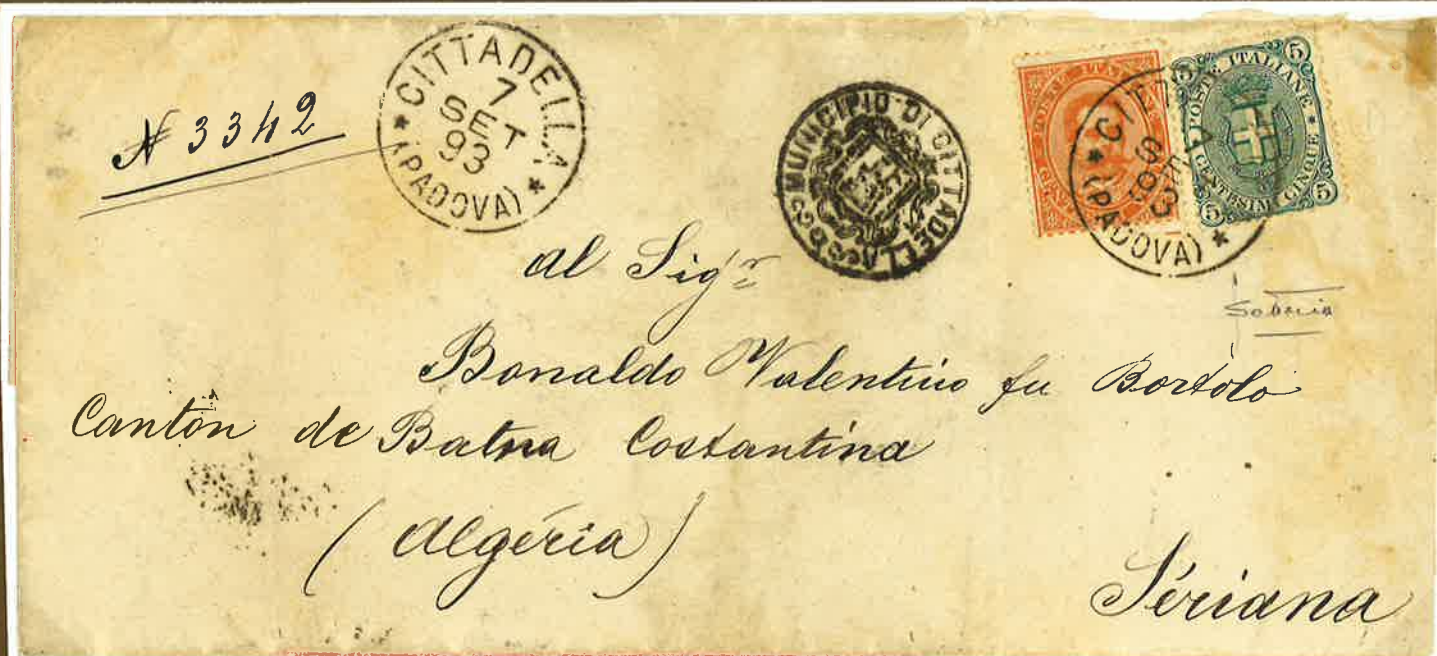 N 3342
CITTADELLA
7
SET
93
(PADOVA)
MUNICIPIO DI CITTADELLA
POSTE ITALIANE
CENTESIMI CINQUE
5 5
5 5
SET
93
(PADOVA)
al Sigr
Bonaldo Valentino fu Bortolo
Canton de Batna Costantina
(Algéria)
Sériana